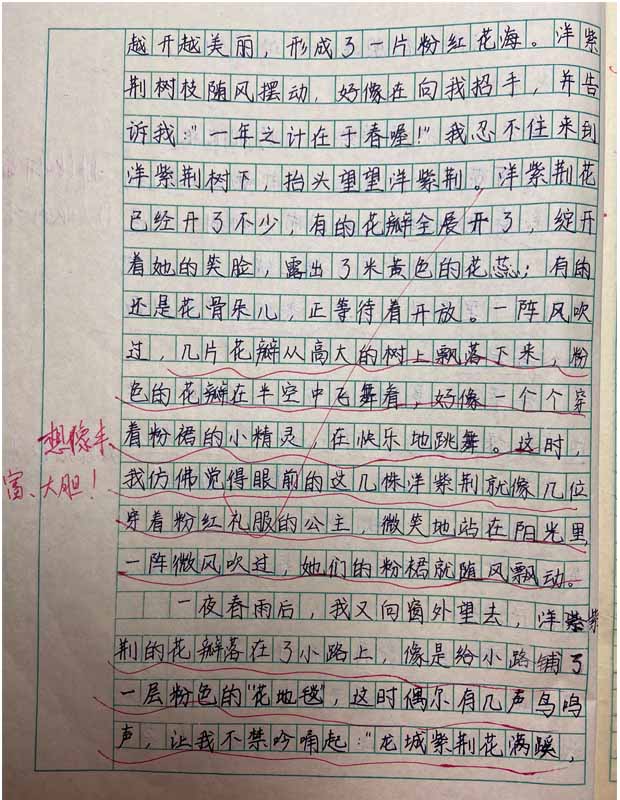 越开越美丽，形成了一片粉红花海。洋紫
荆树枝随风摆动，好像在向我招手，并告
诉我："一年之计在于春喔！"我忍不住来到
洋紫荆树下，抬头望望洋紫荆。洋紫荆花
已经开了不少，有的花瓣全展开了，绽开
着她的笑脸，露出了米黄色的花蕊；有的
还是花骨朵儿，正等待着开放。一阵风吹
过，几片花瓣从高大的树上飘落下来，粉
色的花瓣在半空中飞舞着，好像一个个穿
着粉裙的小精灵，在快乐地跳舞。这时，
我仿佛觉得眼前的这几株洋紫荆就像几位
穿着粉红礼服的公主，微笑地站在阳光里
一阵微风吹过，她们的粉裙就随风飘动。
一夜春雨后，我又向窗外望去，洋紫
荆的花瓣落在了小路上，像是给小路铺了
一层粉色的"花地毯"，这时偶尔有几声鸟鸣
声，让我不禁吟诵起："龙城紫荆花满蹊，
想像丰
富、大胆！